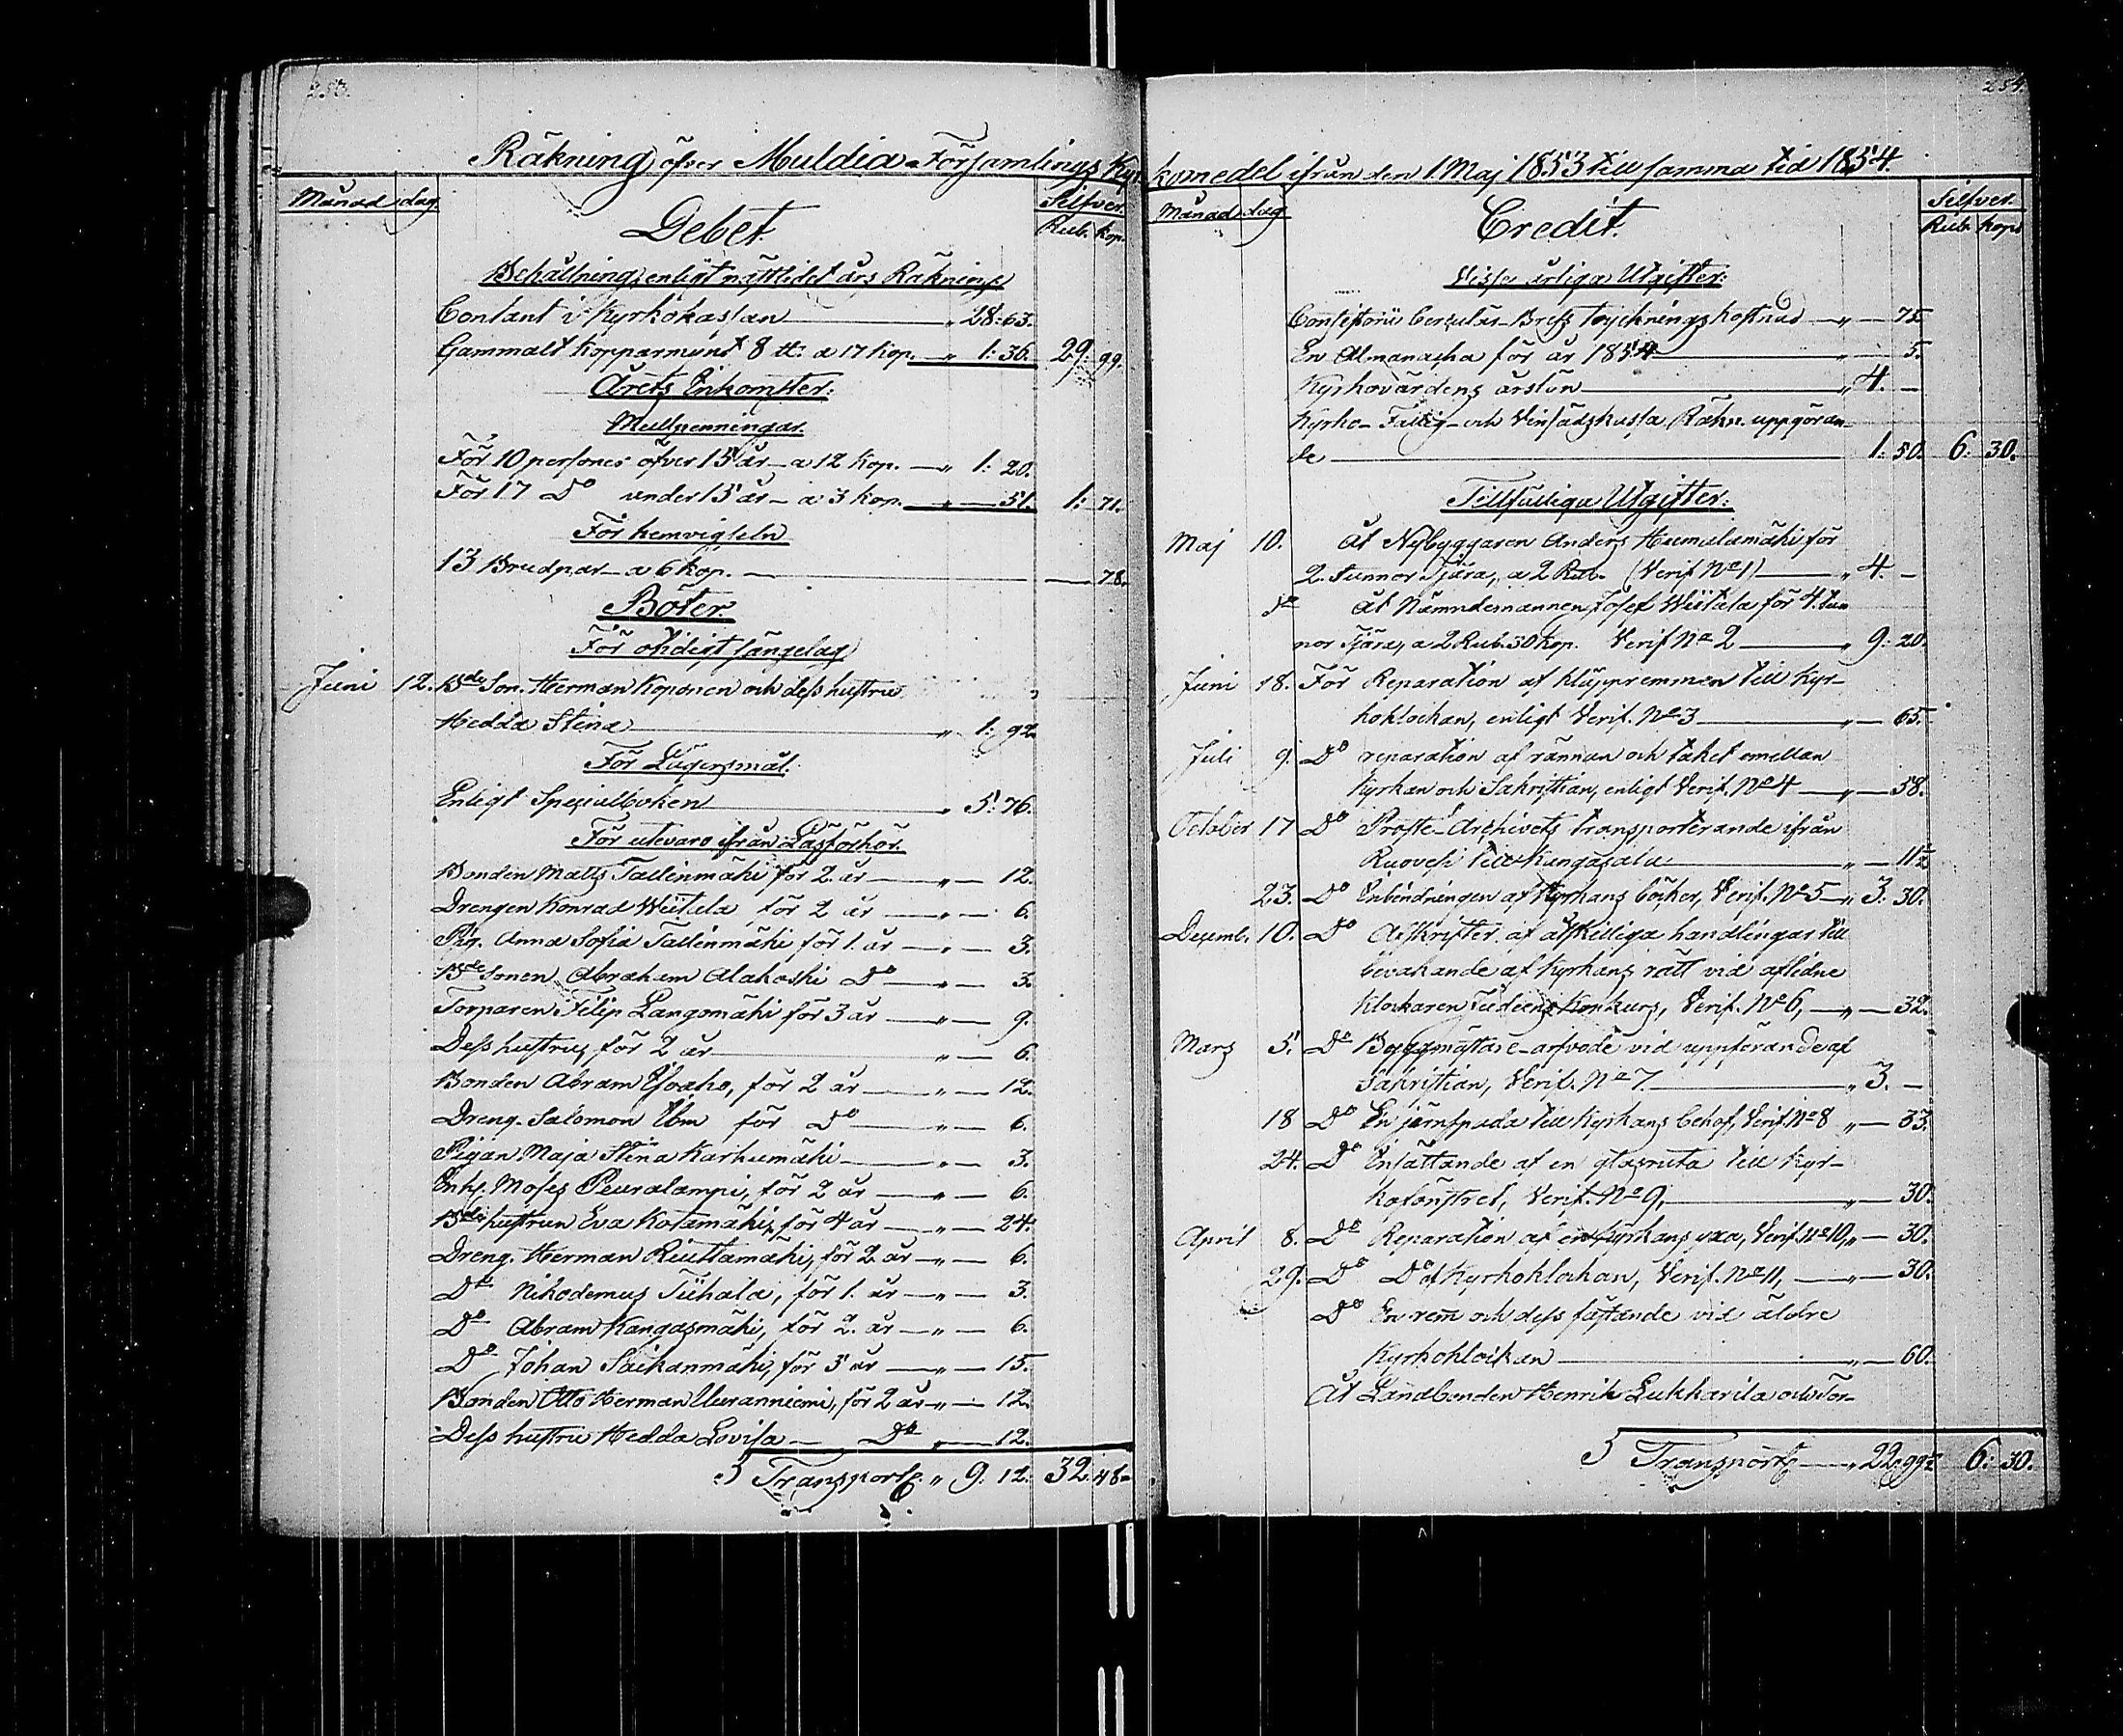 253.
Räkning öfver Muldia Församlings Kyr
Månad dag
Debet.
Silfver.
Rub. kop.
Behållning, enligt nästlidet års Räkning
Contant i Kyrkokassan " 28: 63.
Gammalt Kopparmynt 8 ℔: a 17 Kop. " 1: 36. 29. 99.
Årets Inkomster:
Mullpenningar.
För 10 persones öfver 15 år a 12 Kop. " 1: 20.
För 17 Do under 15 år a 3 Kop. " 51. 1: 71.
För hemvigseln
13 Brudpar a 6 Kop. 78.
Böter.
För otidigt sängelag
Juni 12. Bde Son. Herman Koponen och dess hustru
Hedda Stina " 1: 92.
För Lägersmål.
Enligt Specialboken " 5: 76.
För utevaro ifrån Läsförhör.
Bonden Matts Tallinmäki för 2. år " 12.
Drengen Konrad Wiitala för 2 år " 6.
Pig. Anna Sofia Tallinmäki för 1. år " 3.
Bde Sonen Abraham Alakoski Do " 3.
Torparen Filip Langomäki för 3 år " 9.
Dess hustru, för 2 år " 6.
Bonden Abram Ysoaho, för 2 år " 12.
Dreng. Salomon Ibm för Do " 6.
Pigan Maja Stina Karhumäki " 3.
Enkl. Moses Peuralampi, för 2 år " 6.
Bde hustrun Eva Kotamäki, för 4 år " 24.
Dreng. Herman Riuttamäki, för 2 år " 6.
Do Nikodemus Tiihala, för 1. år " 3.
Do Abram Kangasmäki, för 2. år " 6.
Do Johan Saikanmäki, för 5 år " 15.
Bonden Otto Herman Uuranniemi, för 2 år " 12.
Dess hustru Hedda Lovisa Do " 12.
Transport " 9. 12. 32. 48.
254.
komedel ifrån den 1. Maj 1853 till samma tid 1854.
Månad dag
Credit.
Silfver.
Rub. kop.
Visse årliga Utgifter:
Consistorii Cerculär Brefs tryckningskostnad " 75
En Almanacka för år 1854 " 5.
Kyrkovärdens årslön " 4. —
Kyrko- Fattig- och Vinsädskassa Räkn. uppgöran
de 1: 50. 6. 30.
Tillfälliga Utgifter.
Maj 10. Åt Nybyggaren Anders Humalamäki för
2. tunnor Tjära, a 2 Rub. (Verif No 1) " 4. —
do åt Nämndemannen Josef Wiitala för 4. tun
nor Tjära, a 2 Rub. 30 kop. Verif No 2 " 9: 20.
Juni 18. För Reparation af kläppremmen till Kyr-
koklockan, enligt Verif. No 3 " 65.
Juli 9. Do reparation af rännan och taket emellan
Kyrkan och Sakristian, enligt Verif. No 4 " 58.
October 17 Do Proste-Archivets transporterande ifrån
Ruovesi till Kangasala " 11½
23. Do Inbindningen af Kyrkans böcker, Verif. No 5 " 3: 30.
Decemb. 10. Do Afskrifter af åtskilliga handlingar till
bevakande af Kyrkans rätt vid aflidne
Klockaren Konkurs, Verif. No 6, " 32.
Mars 5. Do Byggmästare-arfvode vid uppförande af
Sakristian, Verif. No 7. " 3. —
18 Do En järnspada till Kyrkans behof, Verif. No 8 " 33.
24. Do Insättande af en glasruta till Kyr-
kofönstret, Verif. No 9, " 30.
April 8. Do Reparation af en Kyrkans yxa, Verif. No 10, " 30.
29. Do Do af Kyrkoklockan, Verif. No 11, " 30.
Do En rem och dess fästande vid äldre
Kyrkoklockan " 60.
Åt Landbonden Henrik Lukkarila och Tor-
Transport " 22. 99½ 6: 30.